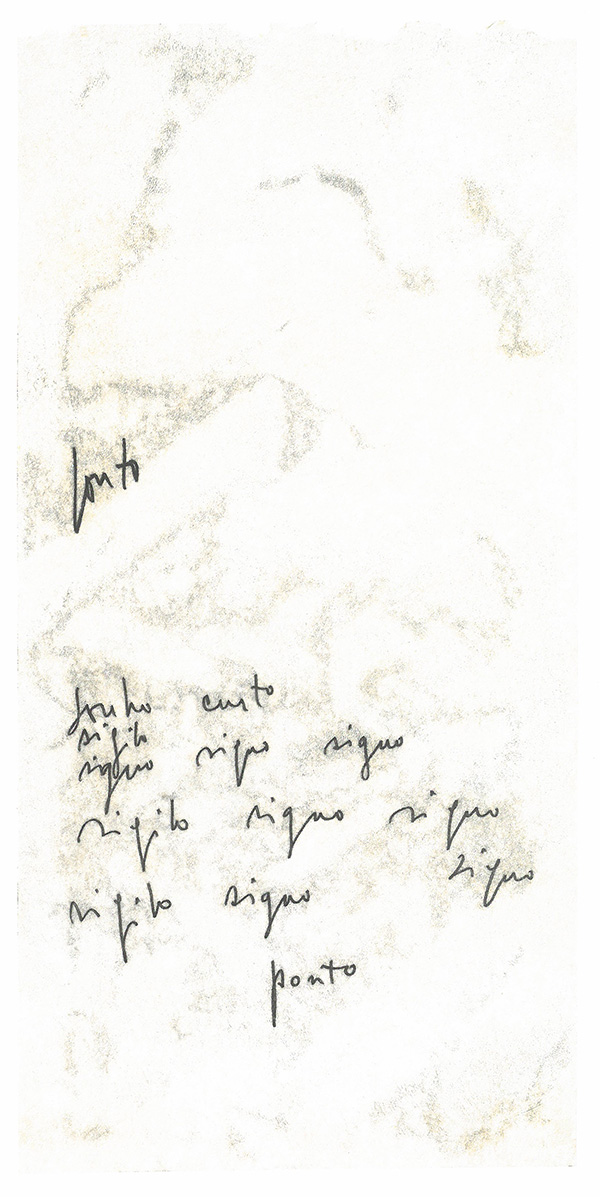 ponto
sonho curto
sigilo
signo signo signo
sigilo signo signo
signo
sigilo signo
ponto